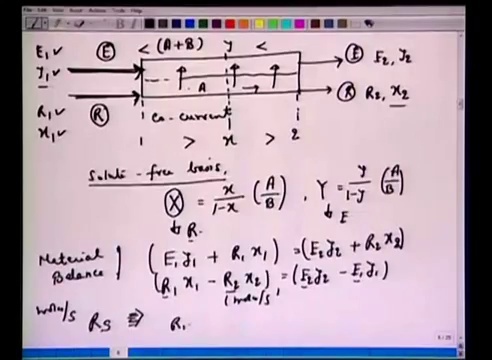 E₁ ✓ (E) < (A+B) y < (E) E₂, y₂
y₁ ✓
A
R₁ ✓ (R) (R) R₂, x₂
x₁ ✓ co-current
1 > x > 2
Solute-free basis,
X = x/(1-x) (A/B), Y = y/(1-y) (A/B)
↓ R. ↓ E
Material Balance (E₁ y₁ + R₁ x₁) = (E₂ y₂ + R₂ x₂)
(R₁ x₁ - R₂ x₂) = (E₂ y₂ - E₁ y₁)
(mole/s)
mole/s Rs ⇒ R₁